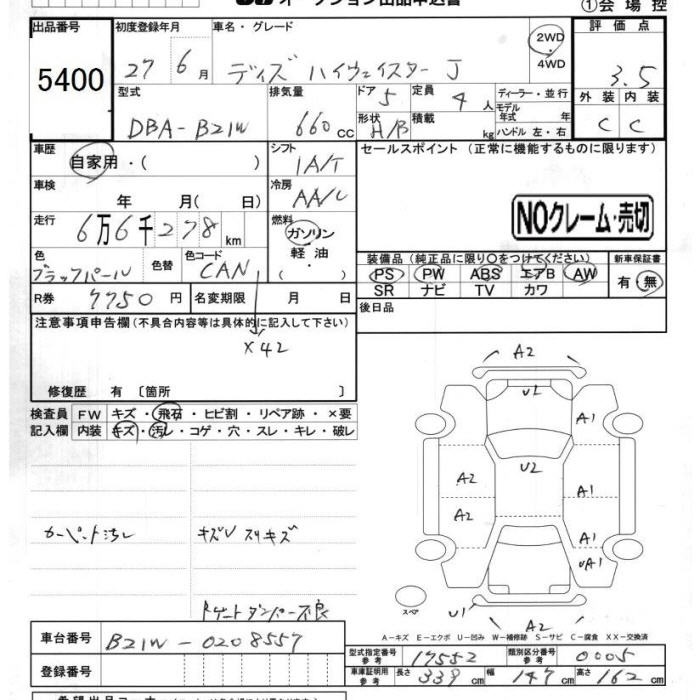 ①会場控
出品番号 初度登録年月 車名・グレード 評価点
5400 27 6月 ディズ ハイウェイスター J 2WD・4WD 3.5
型式 排気量 ドア 5 定員 4人 ディーラー・並行 外装 内装
DBA-B21W 660cc 形状 H/B 積載 kg モデル年式 年式 ハンドル 左・右 C C
車歴 自家用・( ) シフト IA/T セールスポイント(正常に機能するものに限ります)
車検 年 月( 日) 冷房 AA/C
NOクレーム・売切
走行 6万6千278km 燃料 ガソリン・軽油・( )
色 ブラックパール 色替 色コード CAN
装備品(純正品に限り○をつけてください) 新車保証書
PS PW ABS エアB AW 有・無
SR ナビ TV カワ
R券 7750円 名変期限 月 日 後日品
注意事項申告欄(不具合内容等は具体的に記入して下さい)
×42
修復歴 有〔箇所 〕
検査員 FW キズ・飛石・ヒビ割・リペア跡・×要
記入欄 内装 キズ・汚レ・コゲ・穴・スレ・キレ・破レ
カーペット汚レ キズU スリキズ
Rゲートダンパー不良
A2
U2
A1
U2
A2 A1
A2
A1
UA1
スペア
U1 A2
A-キズ E-エクボ U-凹み W-補修跡 S-サビ C-腐食 XX-交換済
車台番号 B21W-0208557
型式指定番号 参考 17552 類別区分番号 参考 0005
登録番号 車庫証明用 参考 長さ 339cm 幅 147cm 高さ 162cm